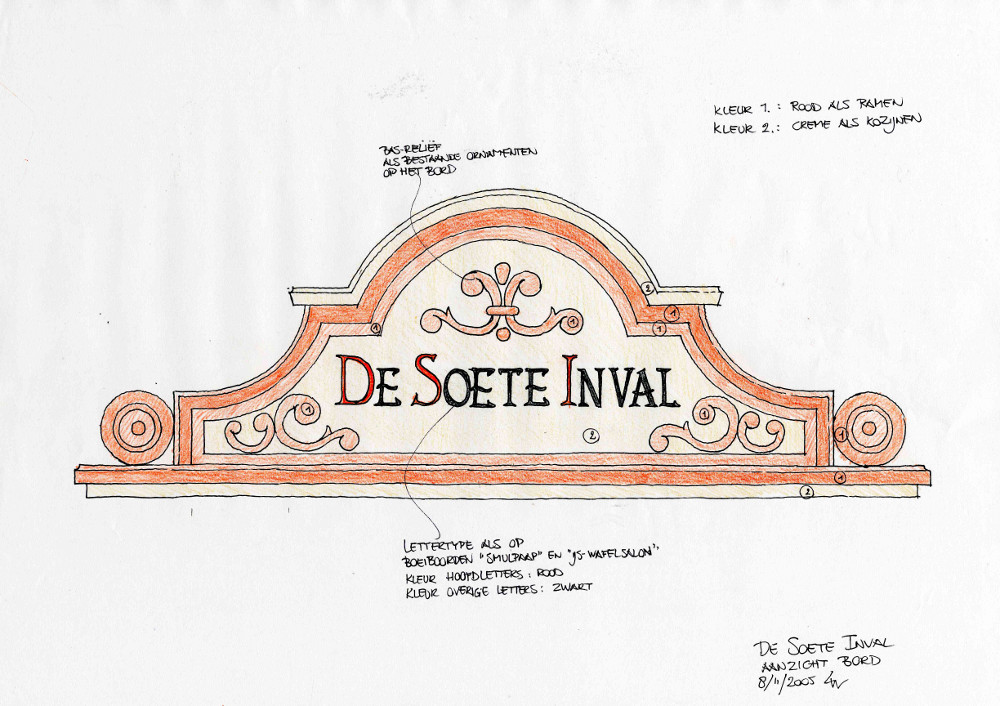 KLEUR 1. : ROOD ALS RAMEN
KLEUR 2. : CREME ALS KOZIJNEN
BAS-RELIËF
ALS BESTAANDE ORNAMENTEN
OP HET BORD
2
1
1
1
1
DE SOETE INVAL
1
1
2
1
1
2
LETTERTYPE ALS OP
BOEIBOORDEN "SMULPAAP" EN "IJS-WAFELSALON"
KLEUR HOOFDLETTERS : ROOD
KLEUR OVERIGE LETTERS : ZWART
DE SOETE INVAL
AANZICHT BORD
8/11/2005